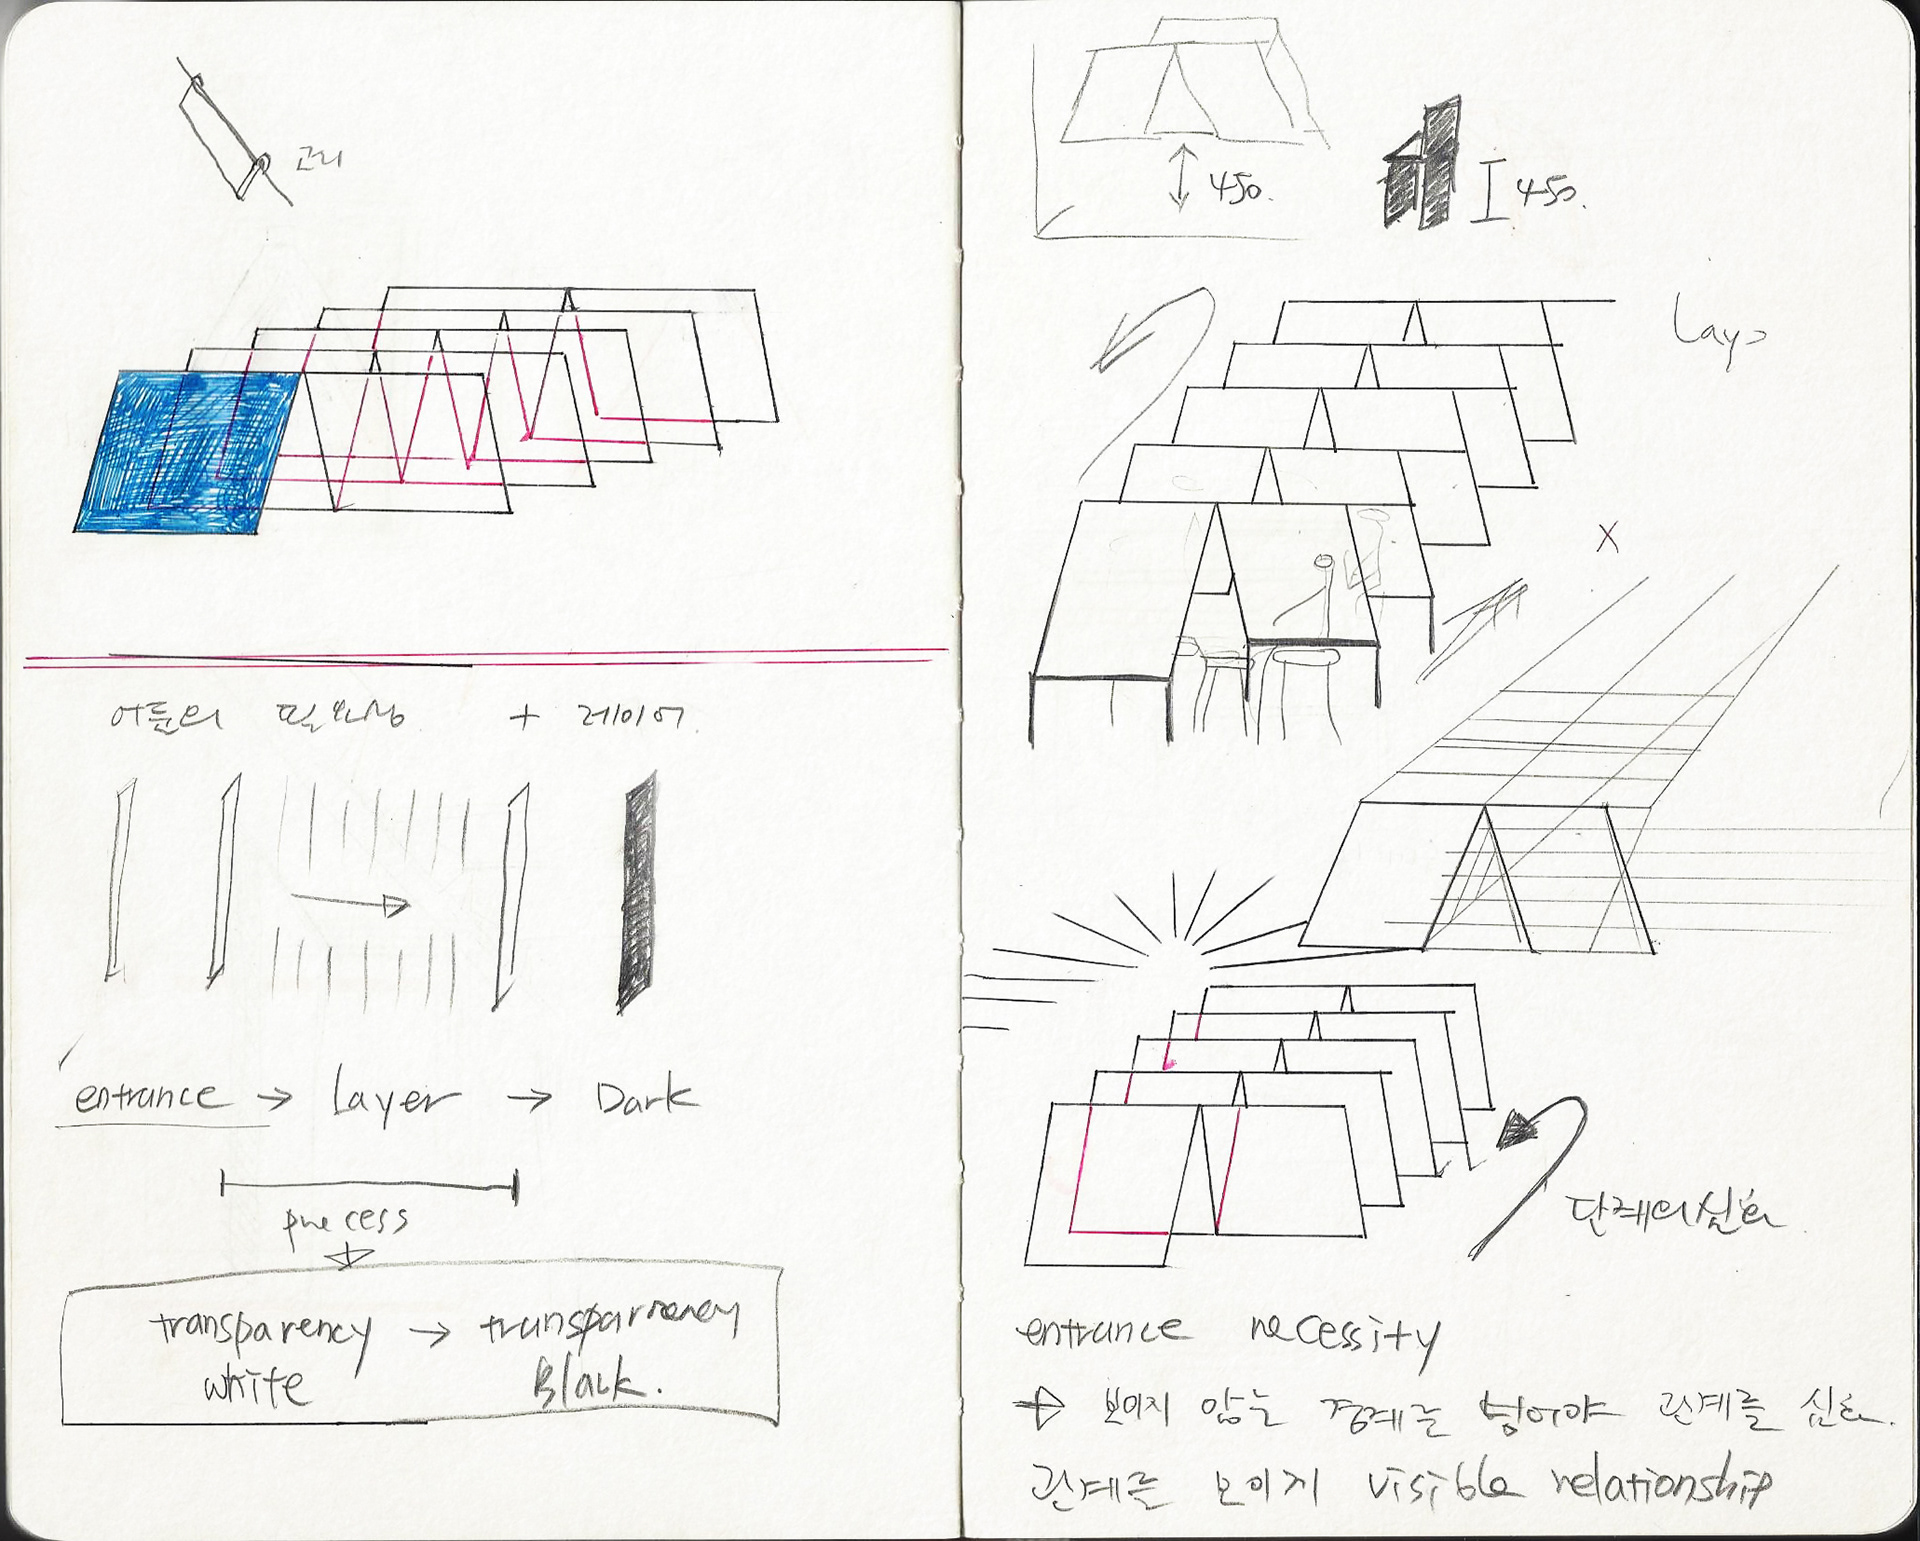 고리
어둠의 필요성 + 레이어
entrance → Layer → Dark
process
transparency → transparency
white Black.
450.
450.
X
entrance necessity
→ 보이지 않는 경계를 넘어야
관계를 보이지 visible relationship